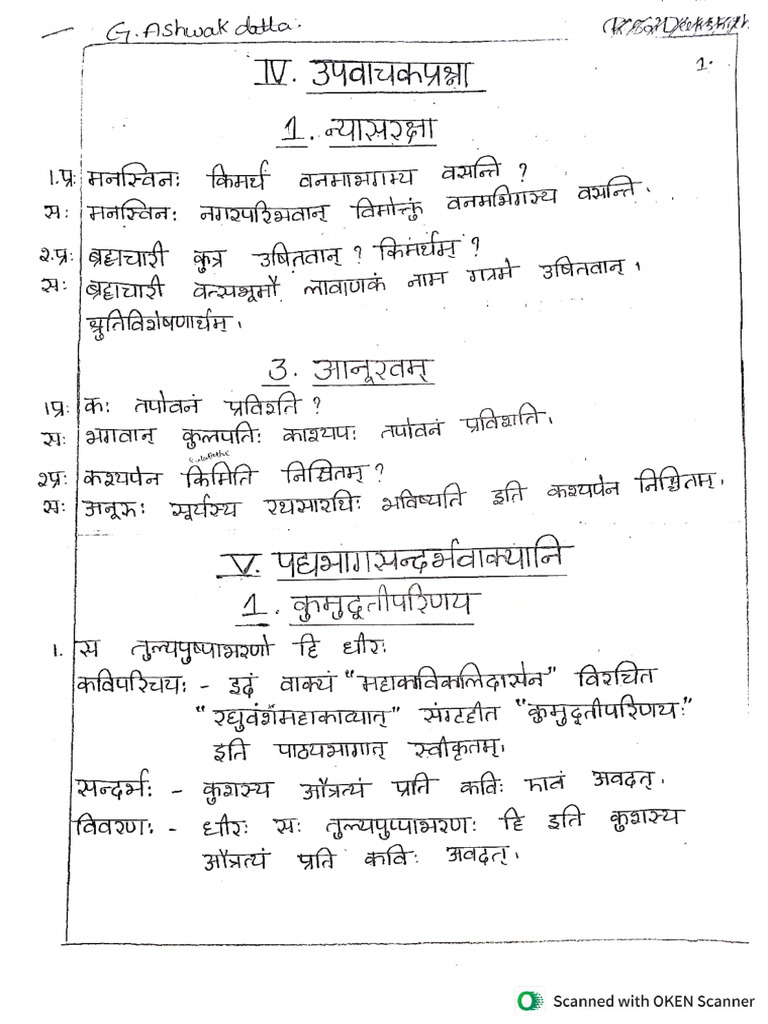 G. Ashwak datta.
1.
IV. उपवाचकप्रश्ना
1. न्यासरक्षा
1.प्र: मनस्विनः किमर्थं वनमाभगम्य वसन्ति ?
सः मनस्विनः नगरपरिभवान् विमोक्तुं वनमभिगस्य वसन्ति.
२.प्र: ब्रह्मचारी कुत्र उषितवान् ? किमर्थम् ?
सः ब्रह्मचारी वत्सभूमौ लावाणकं नाम गत्रमे उषितवान्.
श्रुतिविशेषणार्थम्.
3. आनूरवम्
1प्र: कः तपोवनं प्रविशति ?
सः भगवान् कुलपतिः काश्यपः तपोवनं प्रविशति.
२प्र: कश्यपेन किमिति निश्चितम् ?
सः अनूरुः सूर्यस्य रथसारधिः भविष्यति इति कश्यपेन निश्चितम्.
V. पद्यभागसन्दर्भवाक्यानि
1. कुमुद्वतीपरिणय
1. स तुल्यपुष्पाभरणो हि धीरः
कविपरिचयः - इदं वाक्यं "महाकविकलिदासेन" विरचित
"रघुवंशमहाकाव्यात्" संगृहीत "कुमुद्वतीपरिणयः"
इति पाठ्यभागात् स्वीकृतम्.
सन्दर्भः - कुशस्य औन्नत्यं प्रति कविः अवदत्.
विवरणः - धीरः सः तुल्यपुष्पाभरणः हि इति कुशस्य
औन्नत्यं प्रति कविः अवदत्.
Scanned with OKEN Scanner